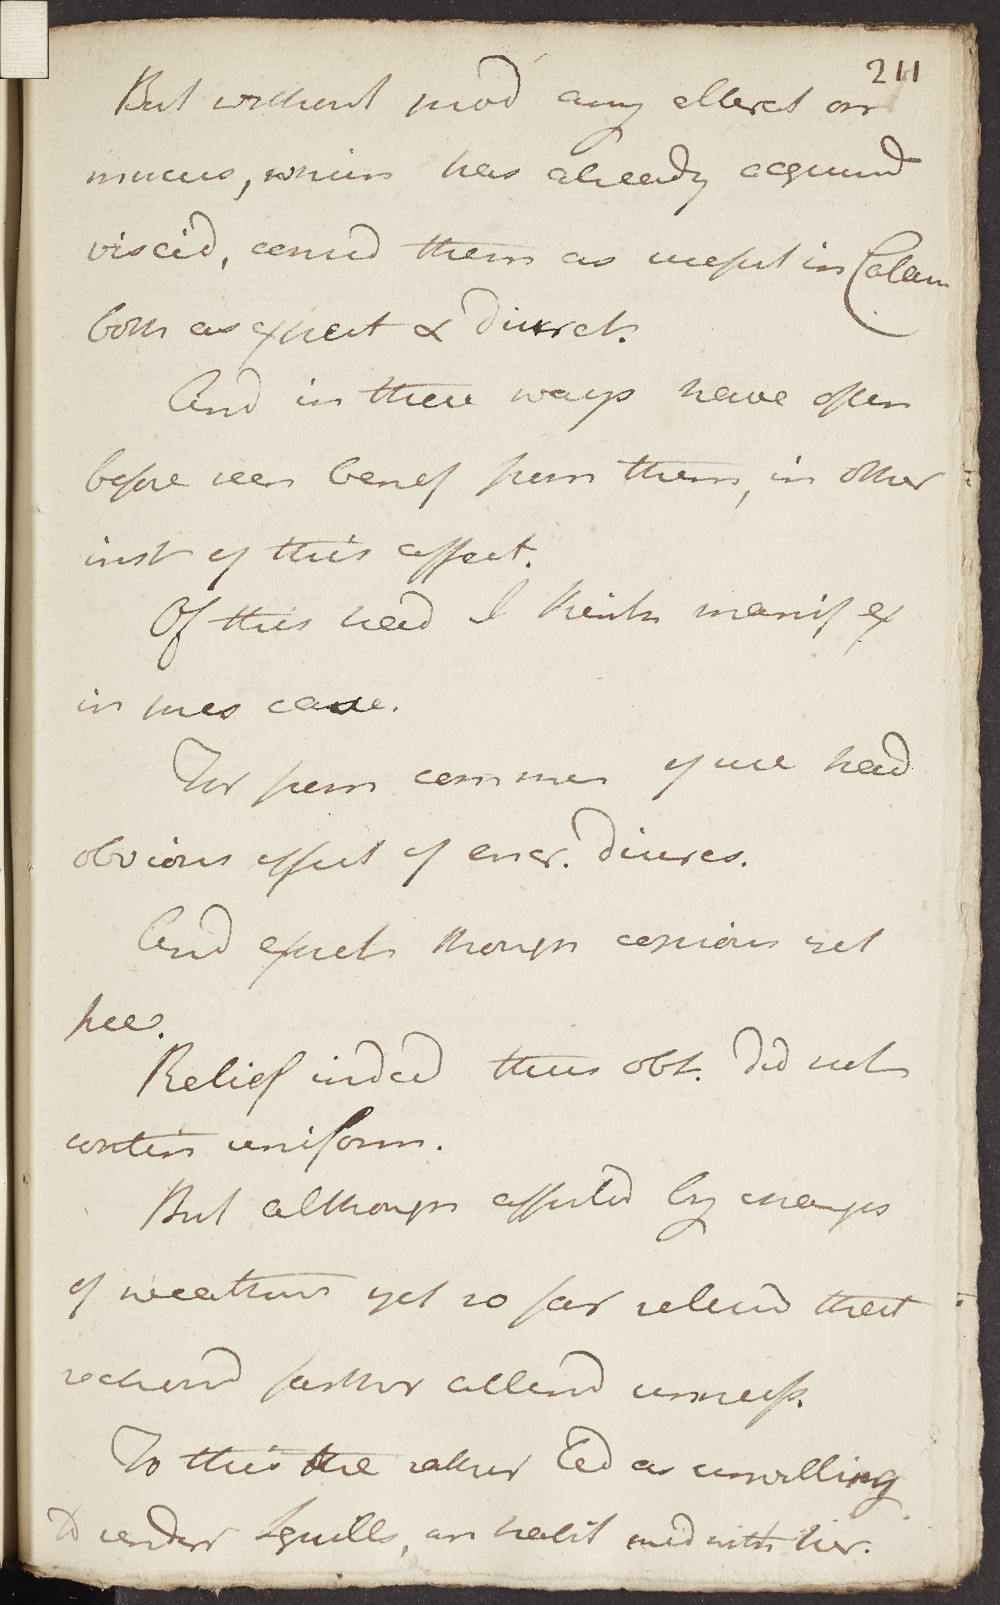 211
But without prod any effect on
mucus, which has already acquird
viscid, consid them as useful in Catarr
both as expect & diuret.
And in these ways have often
before seen benef from them, in other
inst of this affect.
Of this had I think manif ex
in pres case.
For from commen of use had
obvious effect of encr. diures.
And expect though copious yet
free.
Relief indeed thus obt. did not
contin uniform.
But although affected by changes
of weather yet so far reliev'd that
reckond farther attend unnecess.
To this the rather led as unwilling
to render Squills, an habit med with her.